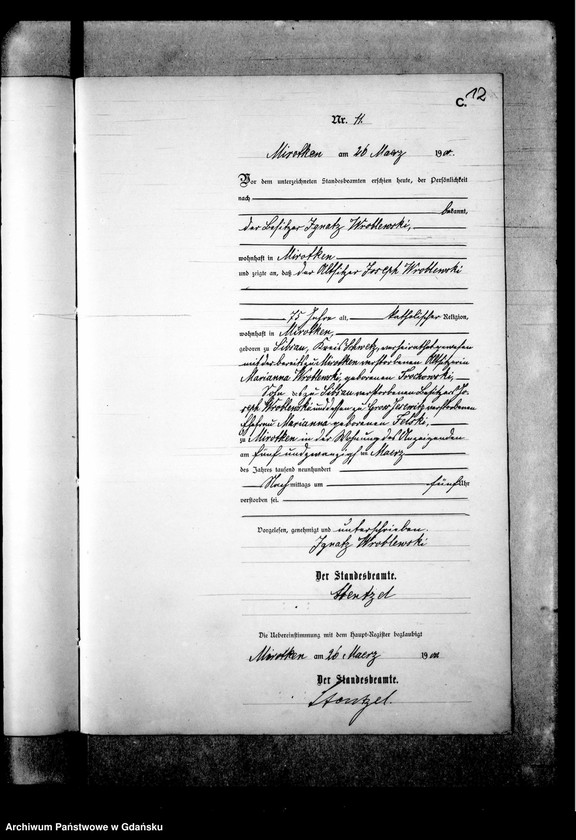 C. 12
Nr. 11
Mirotken am 26 Maerz 1900.
Vor dem unterzeichneten Standesbeamten erschien heute, der Persönlichkeit
nach
bekannt,
der Besitzer Ignatz Wroblewski,
wohnhaft in Mirotken
und zeigte an, daß der Altsitzer Joseph Wroblewski
75 Jahre alt, katholischer Religion,
wohnhaft in Mirotken,
geboren zu Kreis Schwetz, verheirathet gewesen
mit der bereits zu Mirotken verstorbenen Altsitzerin
Marianna Wroblewski, geborenen
Sohn des zu verstorbenen Besitzers Jo-
seph Wroblewski und dessen zu Gross verstorbenen
Ehefrau Marianna geborenen
zu Mirotken in der Wohnung des Anzeigenden
am fünf und zwanzigsten Maerz
des Jahres tausend neunhundert
Nachmittags um fünf Uhr
verstorben sei.
Vorgelesen, genehmigt und unterschrieben.
Ignatz Wroblewski
Der Standesbeamte.
Stentzel
Die Uebereinstimmung mit dem Haupt-Register beglaubigt
Mirotken am 26 Maerz 1900.
Der Standesbeamte.
Stentzel.
Archiwum Państwowe w Gdańsku